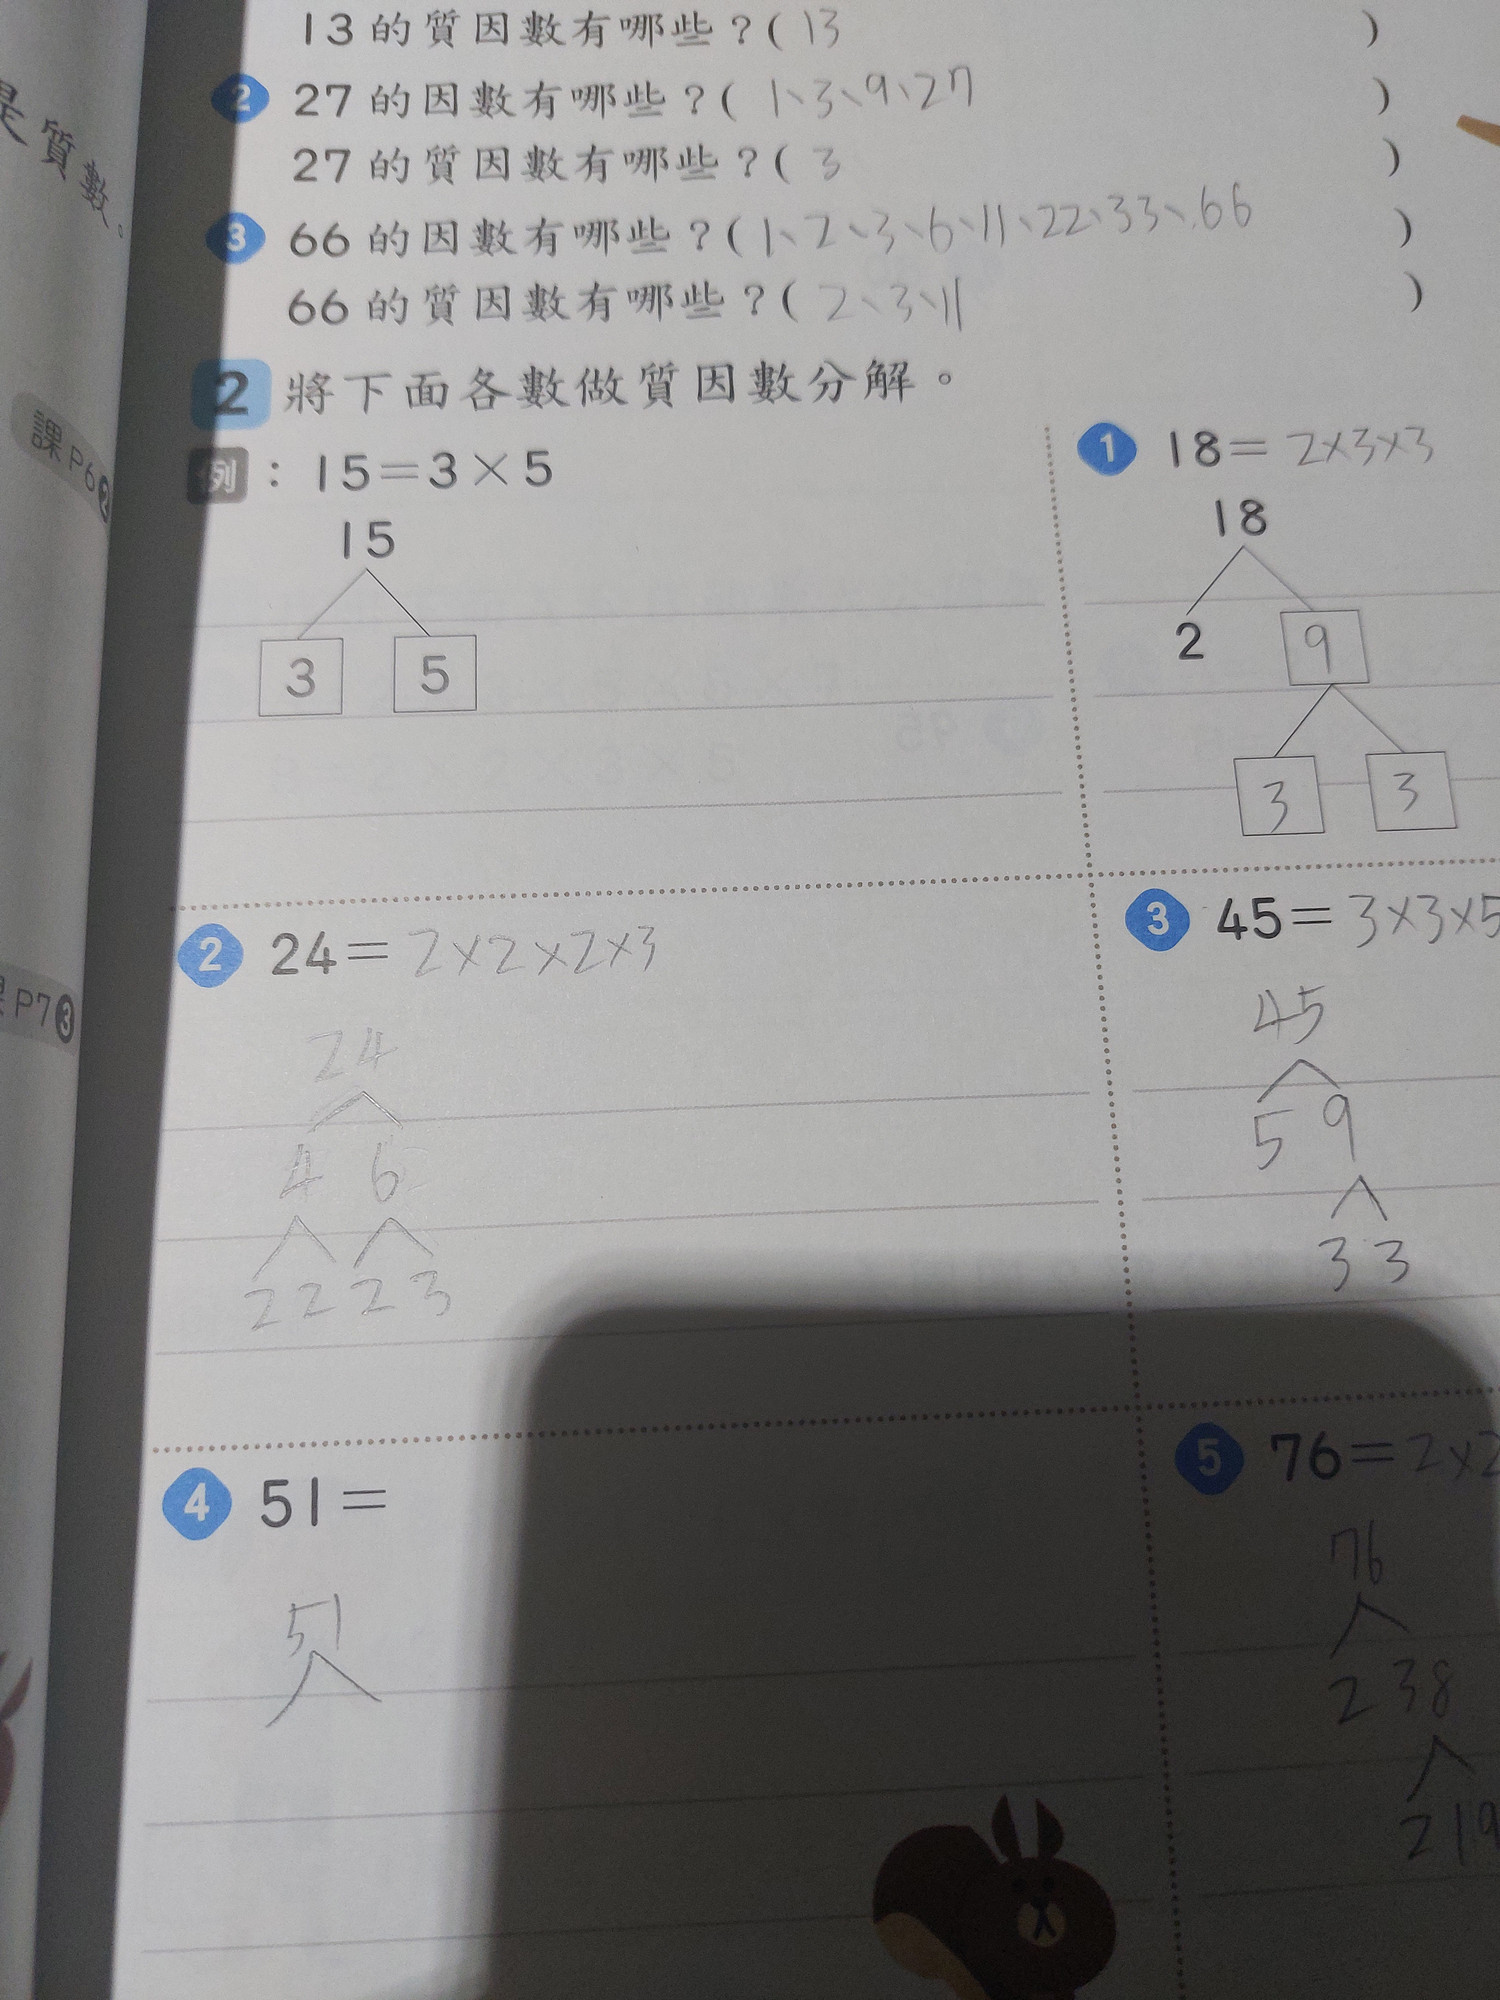 13的質因數有哪些？( 13 )
2 27的因數有哪些？( 1、3、9、27 )
27的質因數有哪些？( 3 )
3 66的因數有哪些？( 1、2、3、6、11、22、33、66 )
66的質因數有哪些？( 2、3、11 )
是質數。
課P6 2
P7 3
2 將下面各數做質因數分解。
例：15=3×5
15
3 5
1 18=2×3×3
18
2 9
3 3
2 24=2×2×2×3
24
4 6
2 2 2 3
3 45=3×3×5
45
5 9
3 3
4 51=
51
5 76=2×2
76
2 38
2 19